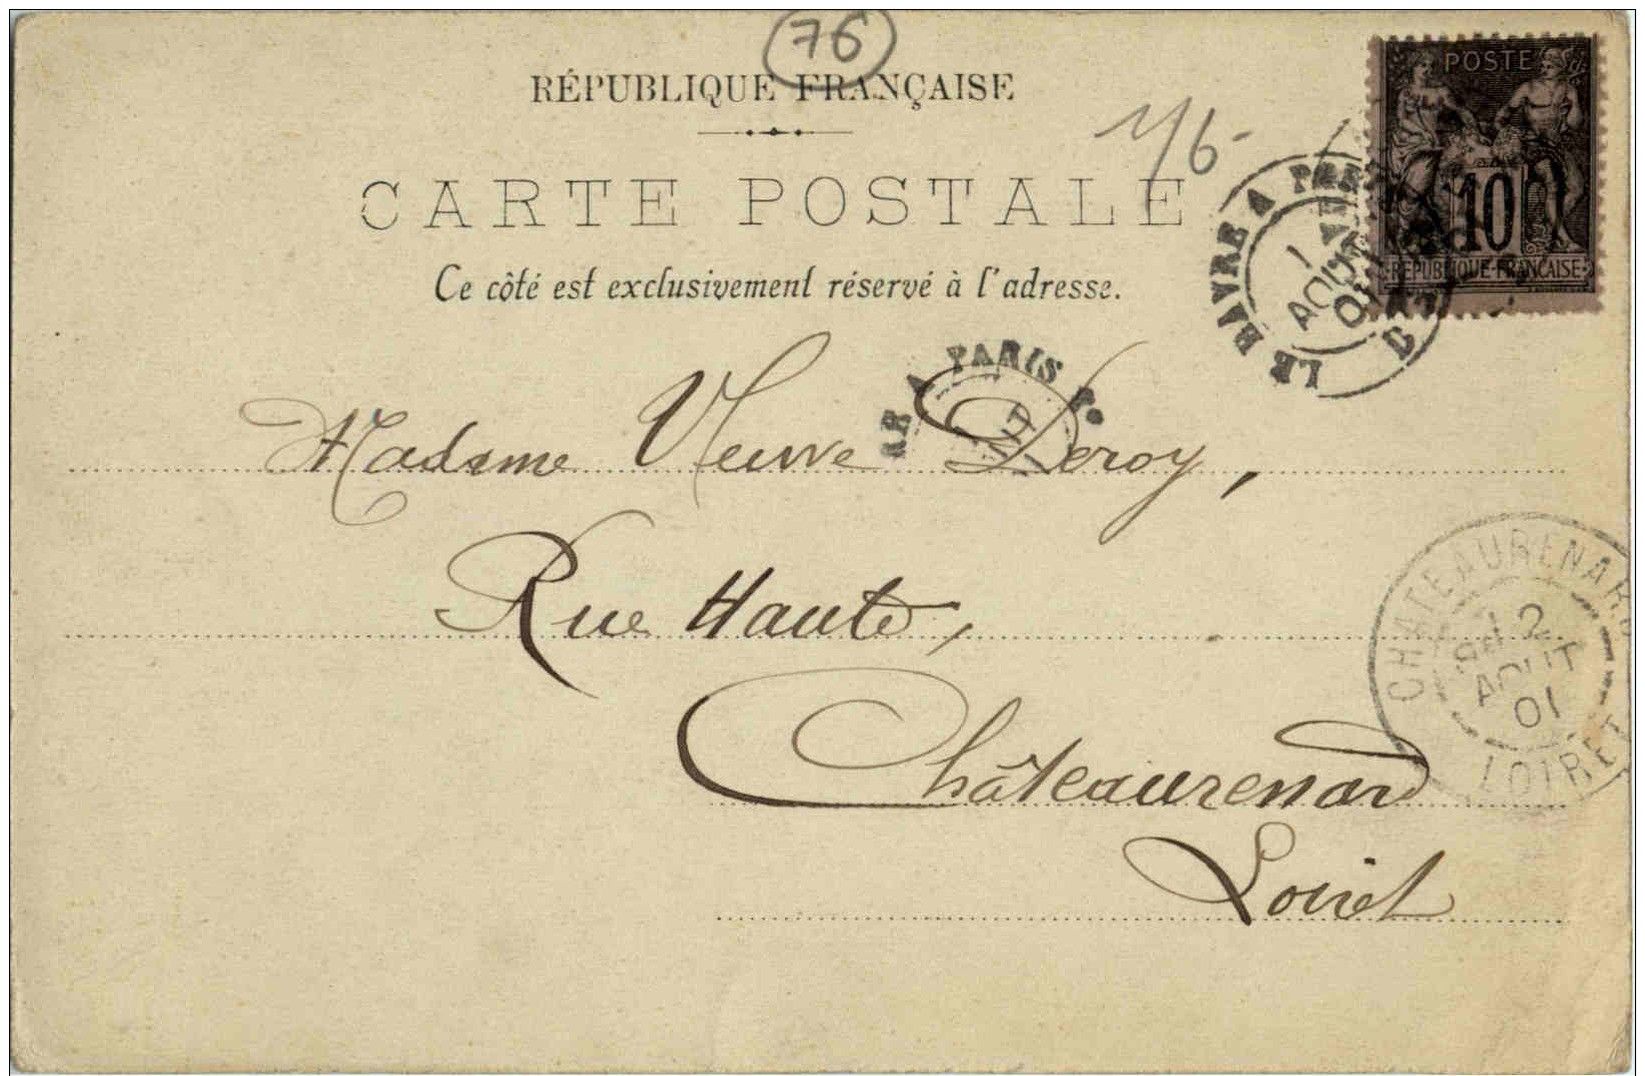 76
RÉPUBLIQUE FRANÇAISE
1/6-
CARTE POSTALE
Ce côté est exclusivement réservé à l'adresse.
POSTE
10
RÉPUBLIQUE FRANÇAISE
LE HAVRE A
1
AOUT
01
PARIS
Madame Veuve Leroy,
Rue Haute,
Châteaurenard
Loiret
CHATEAURENARD
12
AOUT
01
LOIRET